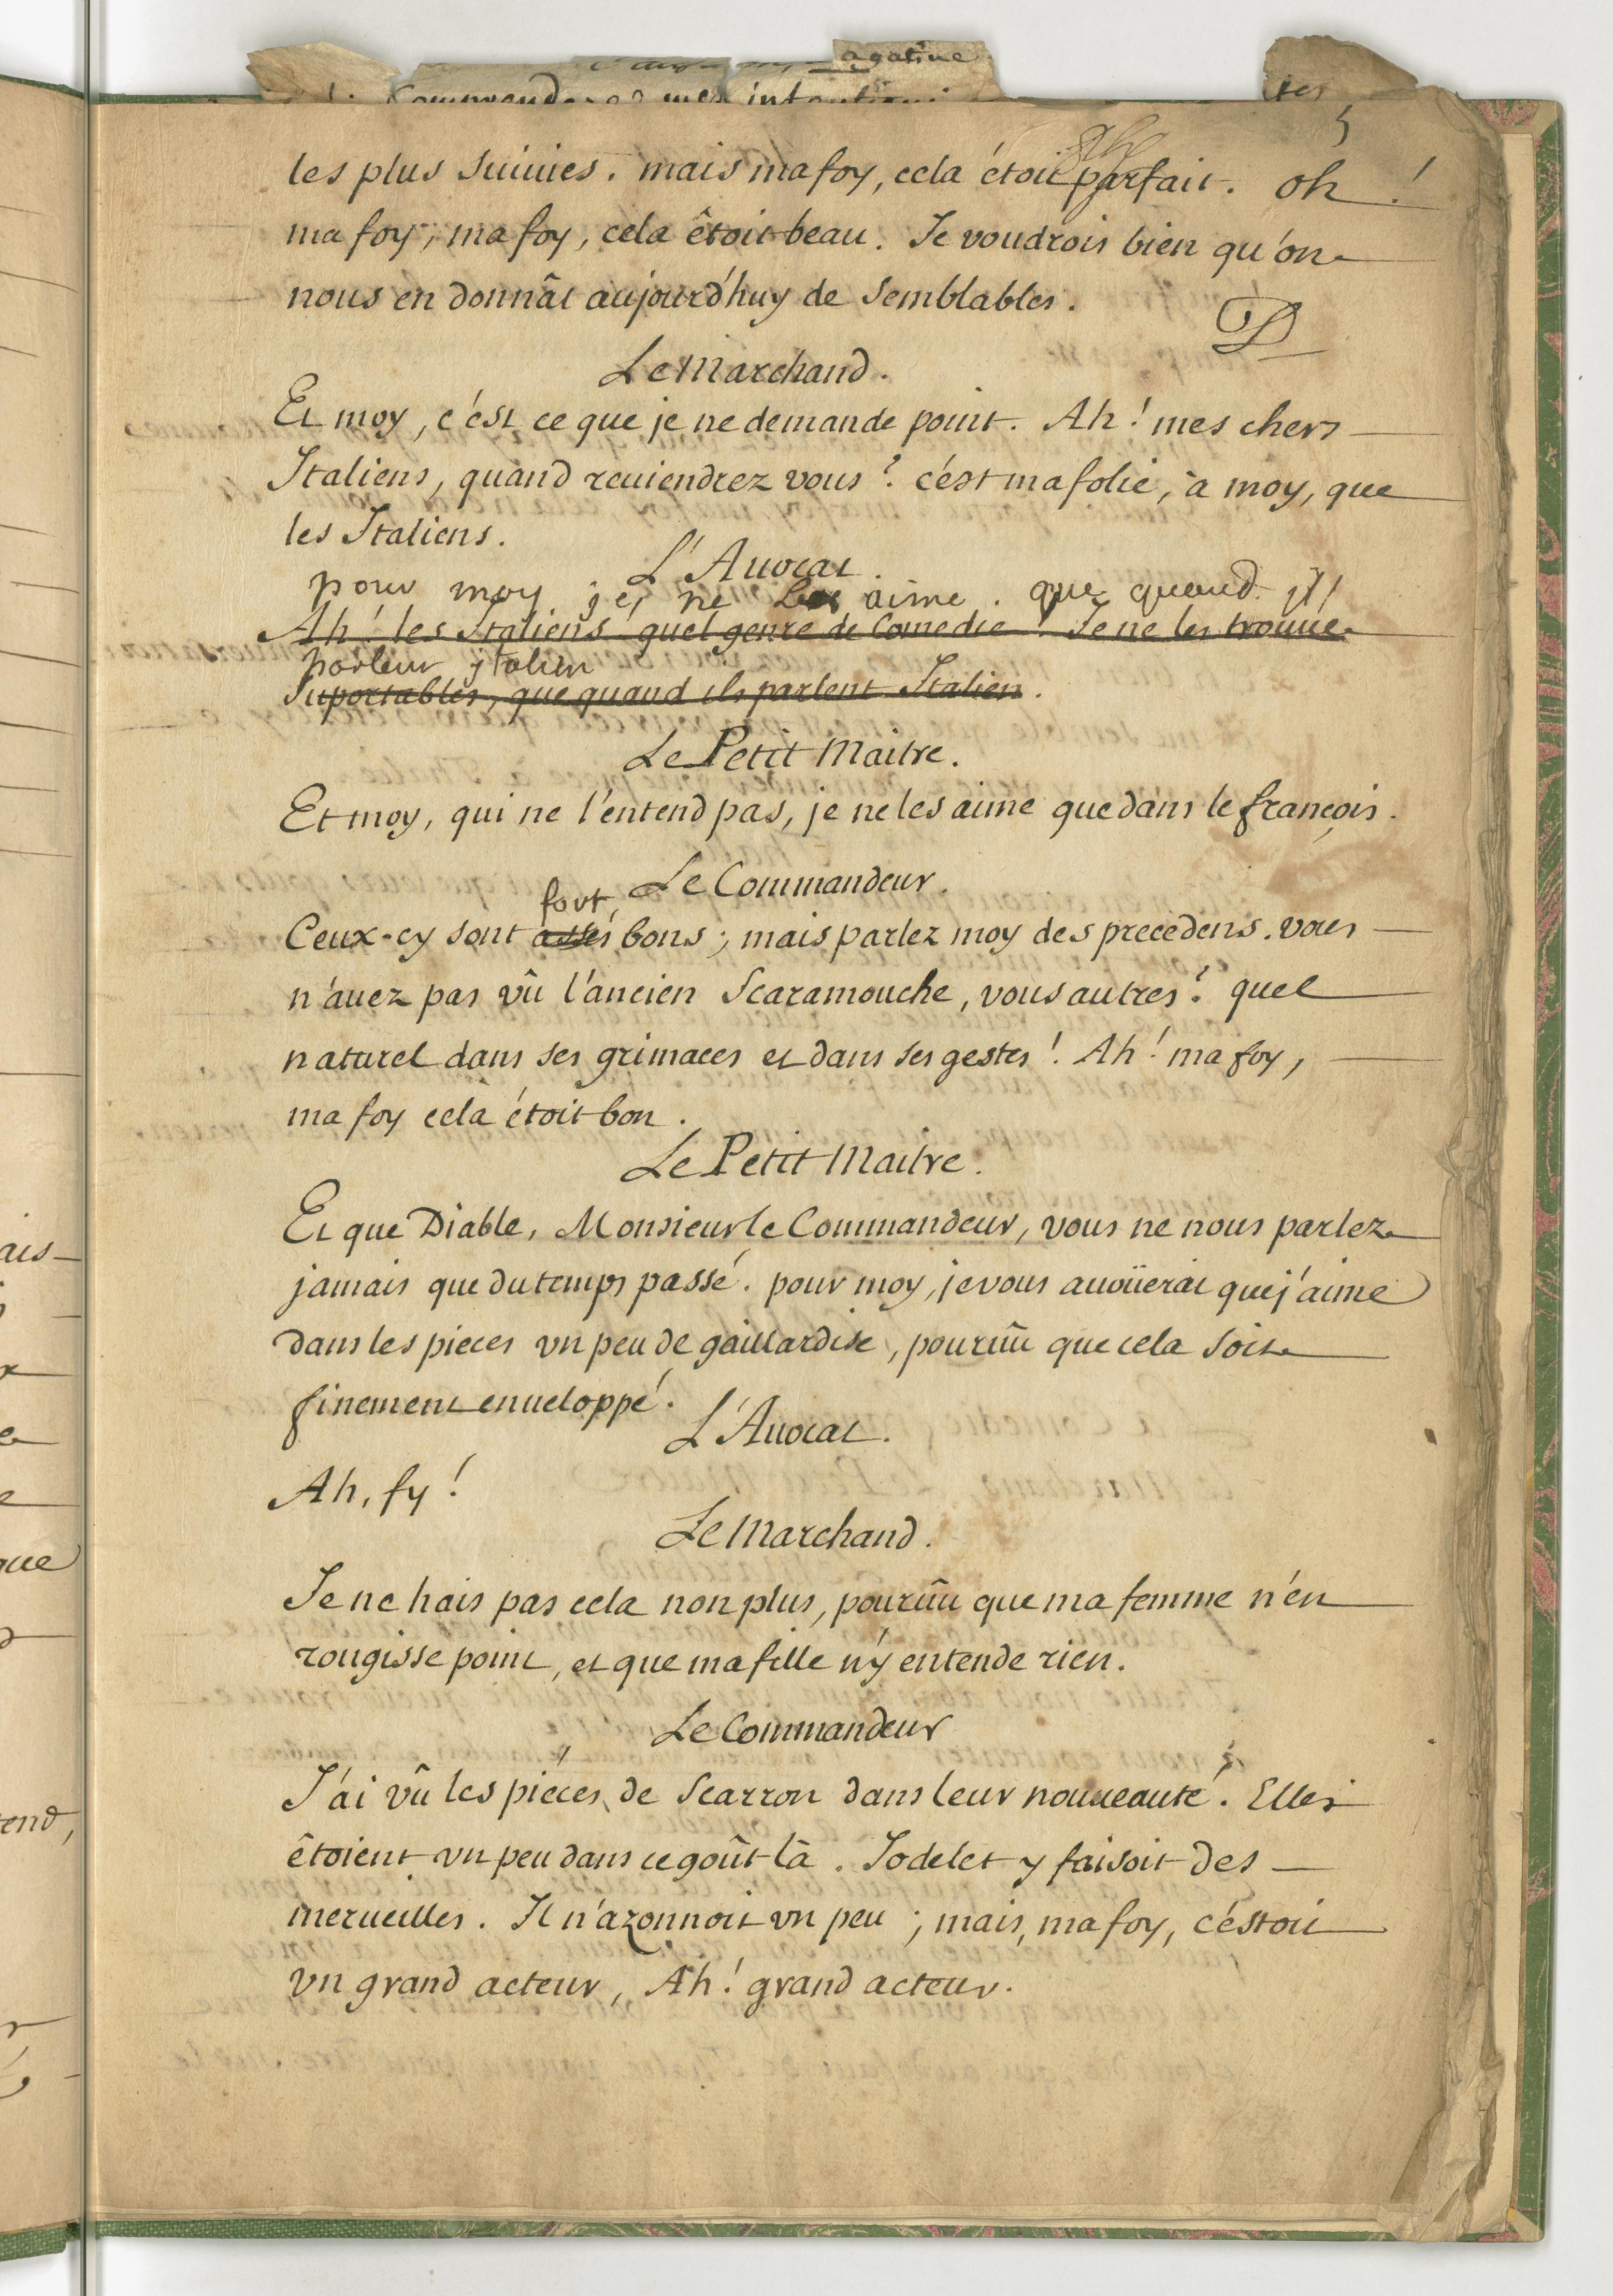 agatine
Comprenderes mes intentions
tes
5
les plus suiuies. mais ma foy, cela étoit parfait. oh !
ma foy, ma foy, cela êtoit beau. Je voudrois bien qu'on
nous en donnât aujourd'huy de semblables.
Le Marchand.
Et moy, c'ést ce que je ne demande point. Ah ! mes chers
Italiens, quand reuiendrez vous ? c'ést ma folie, à moy, que
les Italiens.
L'Auocat.
pour moy je ne les aime . que quand jls
Ah ! les Italiens ! quel genre de Comedie ! Je ne les trouue
parleur jtalien
suportables, que quand ils parlent Italien.
Le Petit Maitre.
Et moy, qui ne l'entend pas, je ne les aime que dans le françois.
Le Commandeur.
fort
Ceux-cy sont assés bons ; mais parlez moy des precedens. vous
n'auez pas vû l'ancien Scaramouche, vous autres ? quel
naturel dans ses grimaces et dans ses gestes ! Ah ! ma foy,
ma foy cela étoit bon.
Le Petit Maitre.
Et que Diable, Monsieur le Commandeur, vous ne nous parlez
jamais que du temps passé. pour moy, je vous auoüerai que j'aime
dans les pieces vn peu de gaillardise, pouruû que cela soit
finement enueloppé.
L'Auocat.
Ah, fy !
Le Marchand.
Je ne hais pas cela non plus, pouruû que ma femme n'en
rougisse point, et que ma fille n'y entende rien.
Le Commandeur
J'ai vû les piéces de Scarron dans leur nouueauté. Elles
êtoient vn peu dans ce goût là. Jodelet y faisoit des
merueilles. Il n'azonnoit vn peu ; mais, ma foy, c'éstoit
vn grand acteur, Ah ! grand acteur.